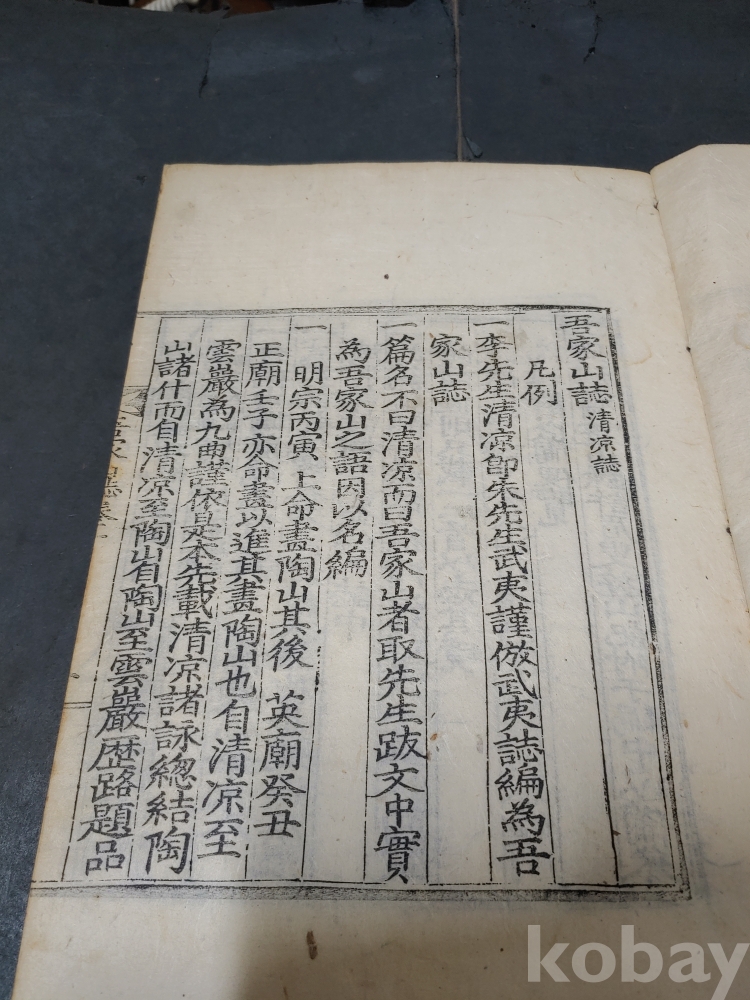 吾家山誌 清凉誌
凡例
一李先生清凉即朱先生武夷謹倣武夷誌編為吾
家山誌
一篇名不曰清凉而曰吾家山者取先生跋文中實
為吾家山之語因以名編
一 明宗丙寅 上命畫陶山其後 英廟癸丑
正廟壬子亦命畫以進其畫陶山也自清凉至
雲巖為九曲謹依是本先載清凉諸詠總結陶
山諸什而自清凉至陶山自陶山至雲巖歷路題品
kobay